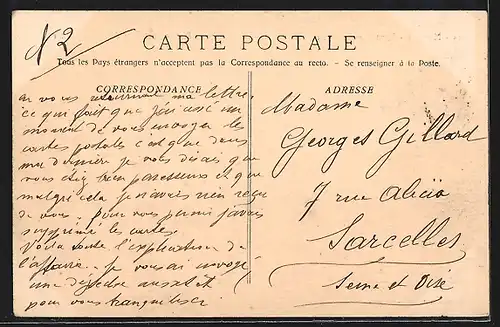 N 2
CARTE POSTALE
Tous les Pays étrangers n'acceptent pas la Correspondance au recto. - Se renseigner à la Poste.
CORRESPONDANCE
ADRESSE
en vous ma lettre,
ce qui fait que j'ai usé un
moment de vous envoyer les
cartes postales c'est que dans
ma dernière je vous disais que
vous étiez bien paresseux et que
malgré cela je n'avais rien reçu
de vous. Pour vous punir j'avais
supprimé les cartes.
Voila toute l'explication de
l'affaire. je vous ai envoyé
une dépêche aussitôt
pour vous tranquiliser.
Madame
Georges Gillard
7 rue
Sarcelles
Seine et Oise